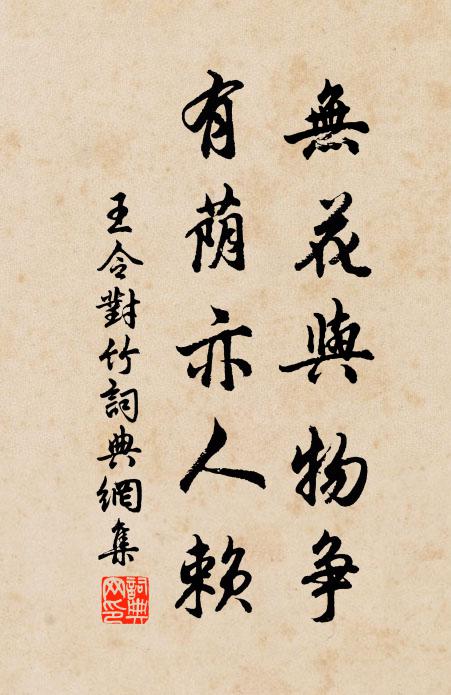 無花與物争
有荫亦人賴
王令對竹詞典網集
詞典网印